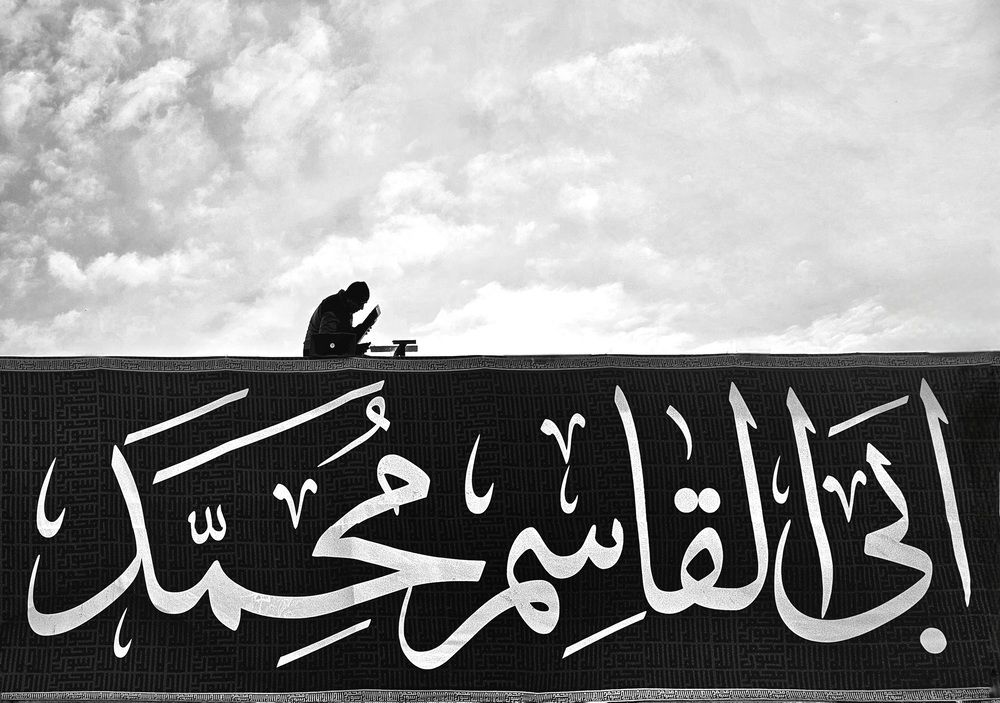 ابی القاسم محمد